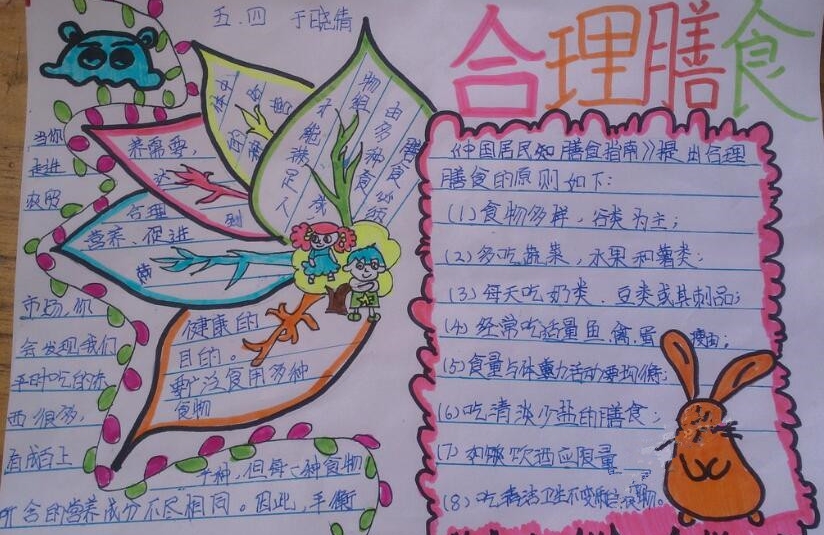 五.四 于晓倩
合理膳食
当你
走进
农贸
市场,你
会发现我们
平时吃的东
西很多,
有成百上
千种,但每一种食物
所含的营养成分不尽相同。因此,平衡
膳食必须
由多种食
物组
才能满足人
养需要,
达
到
合理
营养、促进
健康的
目的。
要广泛食用多种
食物
《中国居民知膳食指南》提出合理
膳食的原则如下:
(1)食物多样,谷类为主;
(2)多吃蔬菜,水果和薯类;
(3)每天吃奶类、豆类或其制品;
(4)经常吃适量鱼、禽、蛋、瘦肉;
(5)食量与体重力活动要均衡;
(6)吃清淡少盐的膳食;
(7)如饮酒应限量
(8)吃清洁卫生不变质的食物。